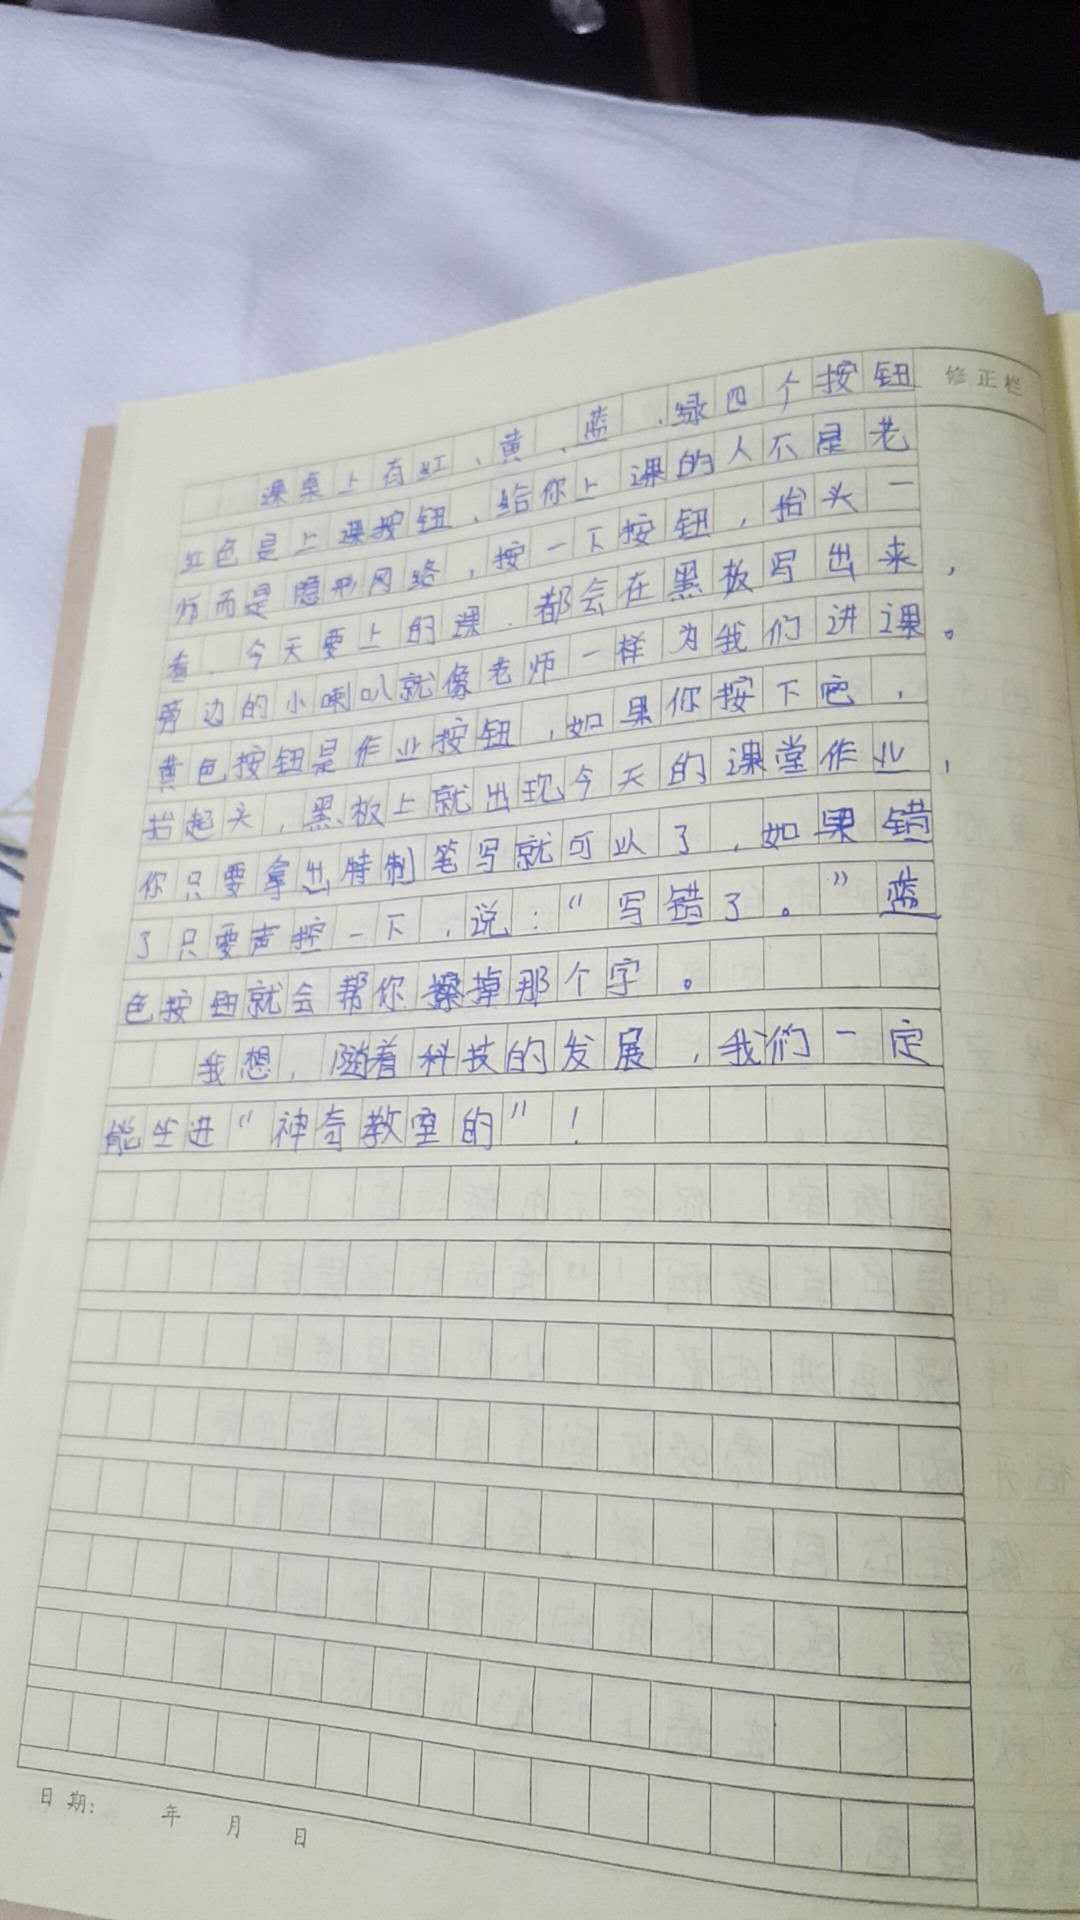 修正栏
课桌上有红、黄、蓝、绿四个按钮
红色是上课按钮、给你上课的人不是老
师而是隐形网络，按一下按钮，抬头一
看、今天要上的课、都会在黑板写出来，
旁边的小喇叭就像老师一样为我们讲课。
黄色按钮是作业按钮，如果你按下它，
抬起头，黑板上就出现今天的课堂作业，
你只要拿出特制笔写就可以了，如果错
了只要声控一下，说：“写错了。”蓝
色按钮就会帮你擦掉那个字。
我想，随着科技的发展，我们一定
能坐进“神奇教室的”！
日期： 年 月 日